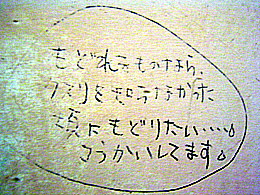 もどれるものなら、
クスリを知らなかった
頃にもどりたい……。
こうかいしてます。